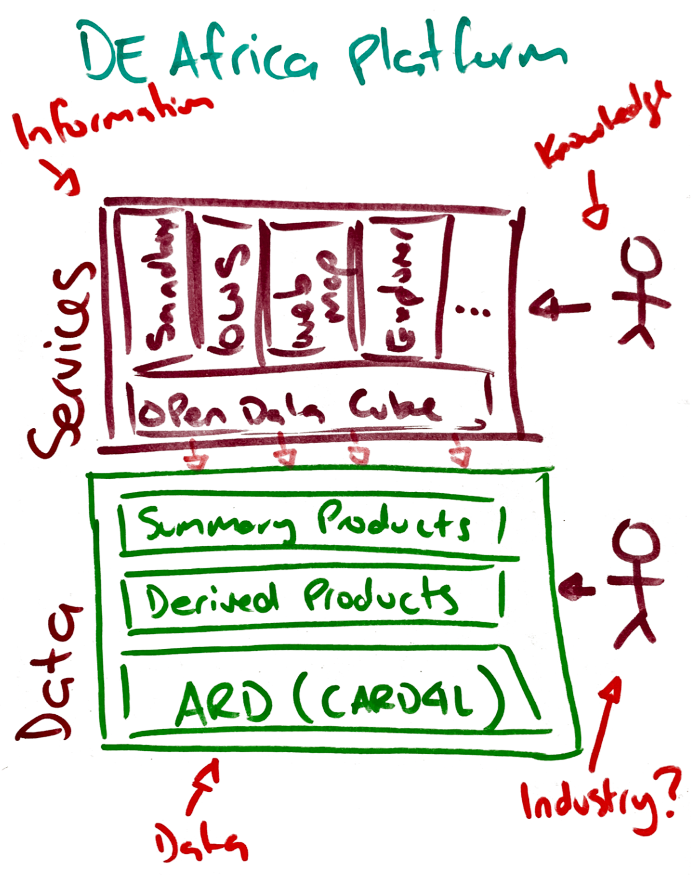 DE Africa Platform
Information
Knowledge
Services
Sandbox
OWS
Web Map
Explorer
...
Open Data Cube
Data
Summary Products
Derived Products
ARD (CARD4L)
Data
Industry?